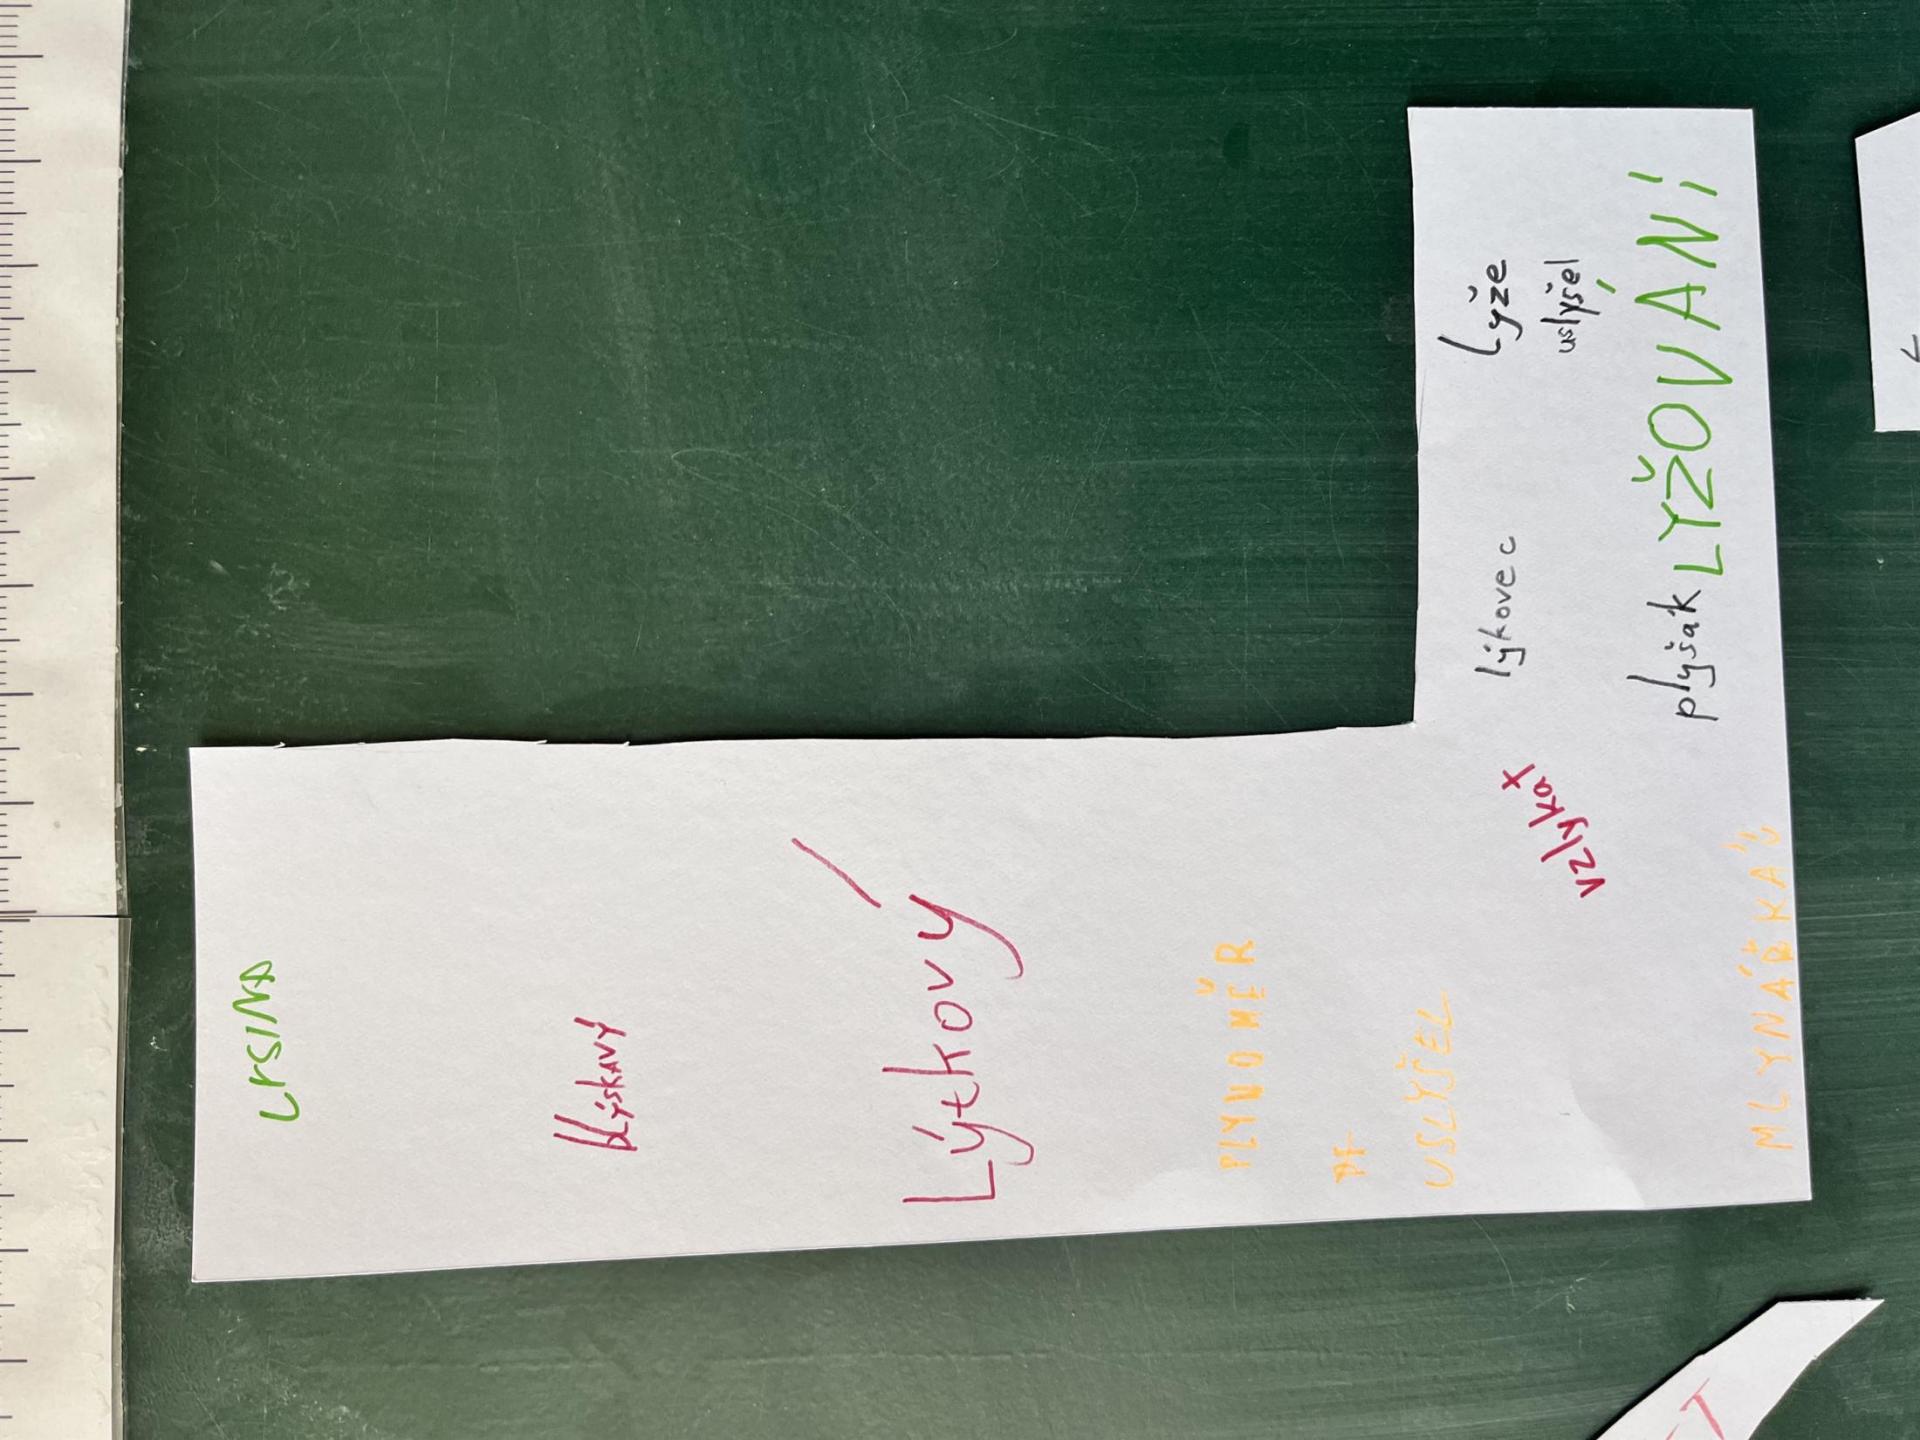 LYSINA
blÝSKAVÝ
Lýtkový
PLYNOMĚR
USLYŠEL
vzlykat
MLYNÁŘKA
lýkovec
Lyže
uslyšel
plyšák LYŽOVÁNÍ